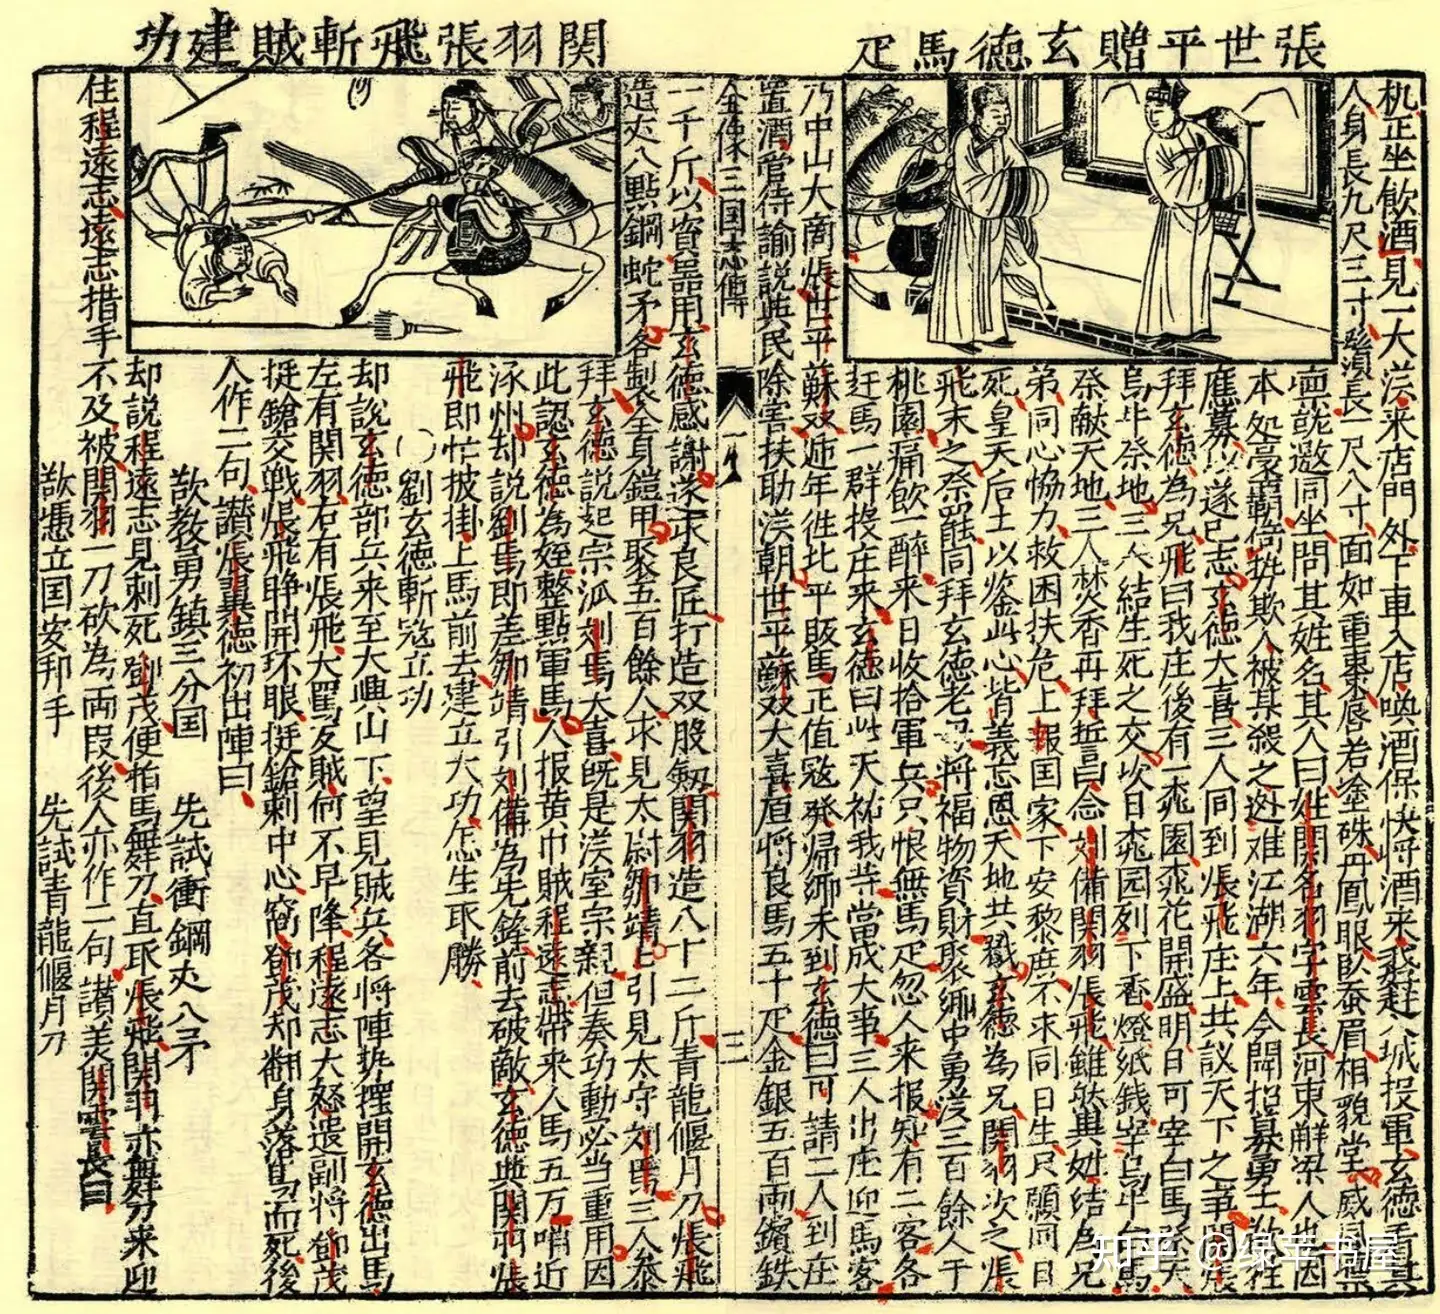 張世平贈玄德馬疋
机正坐飲酒見一大漢來店門外下車入店喚酒保快將酒來我赶入城投軍玄德看其
人身長九尺三寸鬚長一尺八寸面如重棗唇若塗硃丹鳳眼臥蚕眉相貌堂々威風
凛就邀同坐問其姓名其人曰姓関名羽字雲長河東解梁人也因
本処豪覇倚势欺人被某殺之迯难江湖六年今聞招募勇士欲往
應募以遂己志玄德大喜三人同到張飛庄上共議天下之事関張
拜玄德為兄飛曰我庄後有一桃園桃花開盛明日可宰白馬祭天
烏牛祭地三人結生死之交次日桃园列下香燈紙錢宰烏牛白馬
祭献天地三人焚香再拜誓曰念刘備関羽張飛雖然異姓結為兄
弟同心恊力救困扶危上报囯家下安黎庶不求同日生只願同日
死皇天后土以鉴此心背義忘恩天地共戮玄德為兄関羽次之張
飛末之祭罷同拜玄德老母將福物資財聚鄉中勇漢三百餘人于
桃園痛飲一醉來日收拾軍兵只恨無馬疋忽人來报知有二客各
赶馬一群投庄來玄德曰此天祐我等當成大事三人出庄迎馬客
乃中山大商張世平蘇双近年往北平販馬正值寇發歸鄉未到玄德曰可請二人到庄
置酒管待諭說與民除害扶助漢朝世平蘇双大喜愿將良馬五十疋金銀五百兩鑌鉄
全像三国志傳 一卷 三
関羽張飛斬賊建功
一千斤以資器用玄德感謝遂求良匠打造双股劔関羽造八十二斤青龍偃月刀張飛
造丈八點鋼蛇矛各製全身鎧甲聚五百餘人求見太尉鄒靖上引見太守刘焉三人參
拜玄德說起宗派刘焉大喜既是漢室宗親但奏功動必当重用因
此認玄德為姪整點軍馬人报黄巾賊程遠志帶來人馬五万哨近
涿州却說劉焉即差鄒靖引刘備為先鋒前去破敵玄德與関羽張
飛即忙披掛上馬前去建立大功怎生取勝
劉玄德斬寇立功
却說玄德部兵來至大興山下望見賊兵各將陣势擺開玄德出馬
左有関羽右有張飛大罵反賊何不早降程遠志大怒遣副將鄧茂
挺鎗交戦張飛睁開环眼挺鎗剌中心窩鄧茂却翻身落馬而死後
人作二句讃張翼德初出陣曰
欲教勇鎮三分国 先試衝鋼丈八矛
却説程遠志見刺死鄧茂便拍馬舞刀直取張飛関羽亦舞刀來迎
住程遠志遠志措手不及被関羽一刀砍為兩段後人亦作二句讃美関雲長曰
欲憑立囯安邦手 先試青龍偃月刀
知乎 @绿苹书屋